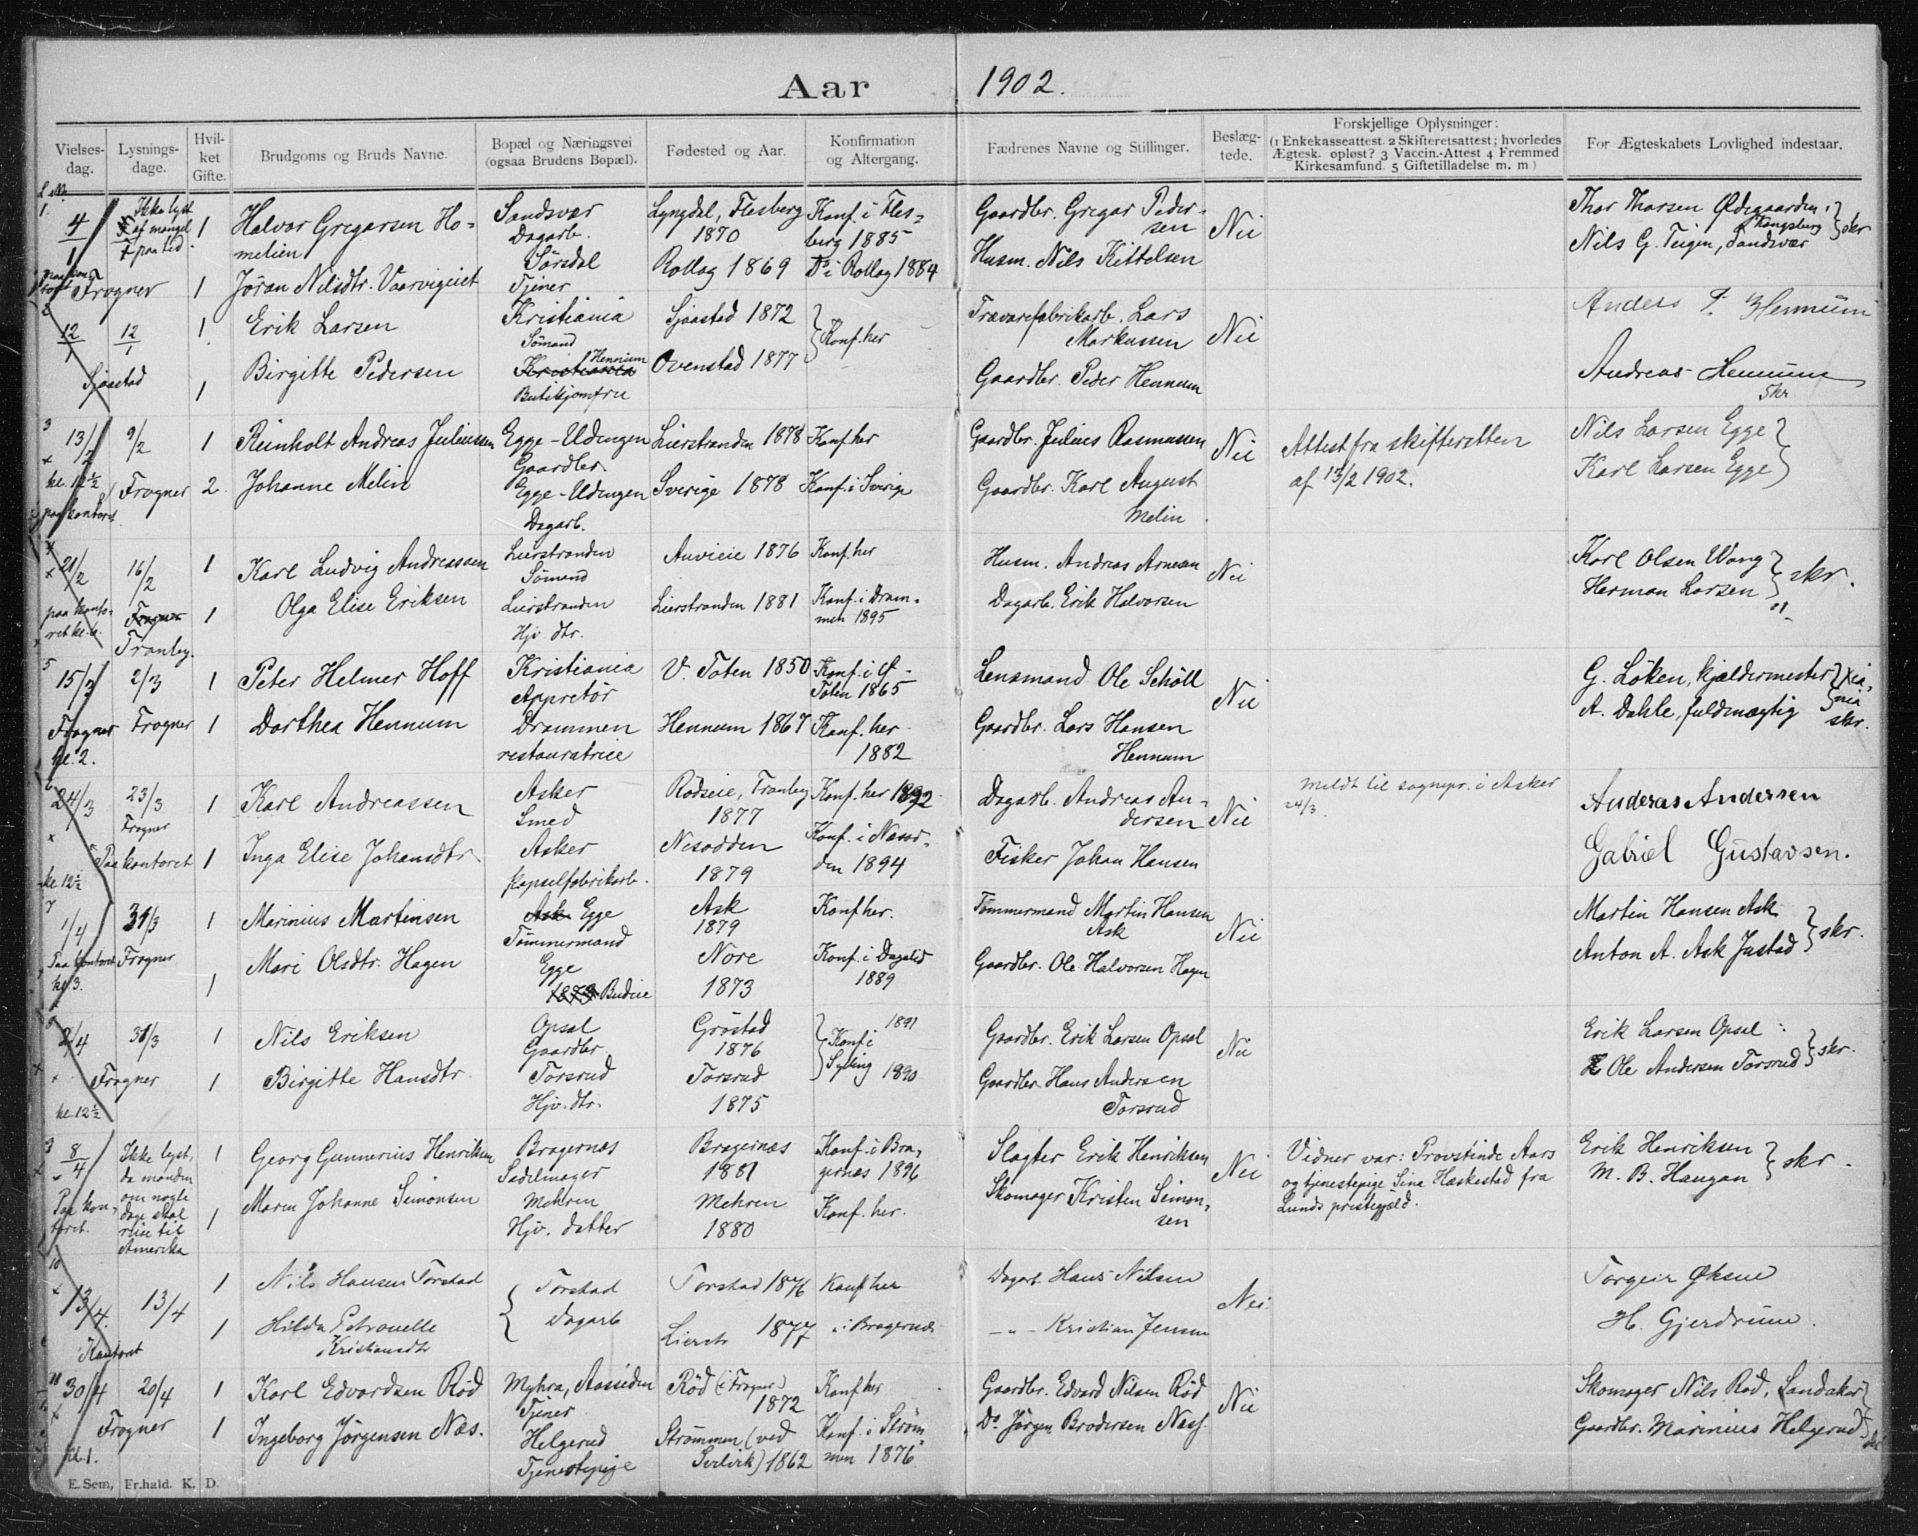 Aar 1902.
Vielses-dag.
Lysnings-dage.
Hvil-ket Gifte.
Brudgoms og Bruds Navne.
Bopæl og Næringsvei (ogsaa Brudens Bopæl).
Fødested og Aar.
Konfirmation og Altergang.
Fædrenes Navne og Stillinger.
Beslæg-tede.
Forskjellige Oplysninger:
(1 Enkekasseattest. 2 Skifteretsattest; hvorledes
Ægtesk. opløst? 3 Vaccin.-Attest 4 Fremmed
Kirkesamfund. 5 Giftetilladelse m. m)
For Ægteskabets Lovlighed indestaar.
L. No.
1.
4/1
Frogner
Ikke lyst
af mangel
paa tid.
1
Halvor Gregarsen Ho-
melien
Sandsvær
Dagarb.
Lyngdal, Flesberg
1870
Konf. i Fles-
berg 1885
Gaardbr. Gregar Peder-
sen
Nei
Thor Thorsen Ødegaarden,
Kongsberg
Nils G. Teigen, Sandsvær
skr
1
Jøran Nilsdtr. Vaarvigeiet
Sørsdal
Tjener
Rollag 1869
Do i Rollag 1884
Husm. Nils Kittelsen
2
12/1
12/1
Sjaastad
1
Erik Larsen
Kristiania
Sømand
Sjaastad 1872
Konf. her
Trævarefabrikarb. Lars
Markussen
Nei
Anders P. Hennum
1
Birgitte Pedersen
Hennum
Kristiania
Butikjomfru
Ovenstad 1877
Gaardbr. Peder Hennum
Andreas Hennum
skr
3
13/2
kl. 12½
paa kontoret
9/2
Frogner
1
Reinholt Andreas Juliussen
Egge-Udengen
Gaardbr.
Lierstranden 1878
Konf. her
Gaardbr. Julius Rasmussen
Nei
Attest fra skifteretten
af 13/2 1902.
Nils Larsen Egge
Karl Larsen Egge
2
Johanne Melin
Egge-Udengen
Dagarb.
Sverige 1878
Konf. i Sverige
Gaardbr. Karl August
Melin
4
21/2
paa konto-
ret kl. 6.
16/2
Frogner
Tranby.
1
Karl Ludvig Andreassen
Lierstranden
Sømand
Auvieie 1876
Konf. her
Husm. Andreas Arnesen
Nei
Karl Olsen Wang
Herman Larsen
skr.
1
Olga Elise Eriksen
Lierstranden
Hjv. dtr.
Lierstranden 1881
Konf. i Dram-
men 1895
Dagarb. Erik Halvorsen
5
15/3
Frogner
kl. 2.
2/3
Frogner
1
Peter Helmer Hoff
Kristiania
Appretør
V. Toten 1850
Konf. i
Toten 1865
Lensmand Ole Schöll
Nei
G. Löken, kjældermester
A. Dahle, fuldmægtig
skr.
1
Dorthea Hennum
Drammen
restauratrice
Hennum 1867
Konf. her
1882
Gaardbr. Lars Hansen
Hennum
6
24/3
Paa kontoret
kl 12½
23/3
Frogner
1
Karl Andreassen
Asker
Smed
Rødseie, Tranby
1877
Konf. her 1892
Dagarb. Andreas An-
dersen
Nei
Meldt til sognepr. i Asker
24/3.
Anderas Andersen
Gabriel Gustavsen.
1
Inga Elise Johansdtr.
Asker
kapselfabrikarb.
Nesodden
1879
Konf. i Nesod-
den 1894
Fisker Johan Hansen
7
1/4
Paa kontoret
kl 3.
31/3
Frogner
1
Marinius Martinsen
Ask Egge
Tømmermand
Ask
1879
Konf her.
Tømmermand Martin Hansen
Ask
Nei
Martin Hansen Ask
Anton A. Ask Justad
skr.
1
Mari Olsdtr. Hagen
Egge
1873 Budeie
Nore
1873
Konf. i Dagalid
1889
Gaardbr. Ole Halvorsen Hagen
8
2/4
Frogner
kl. 12½
31/3
1
Nils Eriksen
Opsal
Gaardbr
Grøstad
1876
Konf. i
Sylling
1891
1890
Gaardbr. Erik Larsen Opsal
Nei
Erik Larsen Opsal
Ole Andersen Torsrud
skr.
1
Birgitte Hansdtr.
Torsrud
Hjv. dtr.
Torsrud
1875
Gaardbr. Hans Andersen
Torsrud
9
8/4
Paa kon-
toret.
Ikke lyst,
da manden
om nogle
dage skal
reise til
Amerika
1
Georg Gunnerius Henriksen
Bragernæs
Sadelmager
Bragernæs
1881
Konf. i Bra-
gernæs 1896
Slagter Erik Henriksen
Nei
Vidner var: Provstinde Aars
og tjenestepige Sina Haskestad fra
Lunds prestegjæld.
Erik Henriksen
M. B. Haugan
skr.
1
Maren Johanne Simonsen
Mehren
Hjv. datter
Mehren
1880
Konf. her.
Skomager Kristen Simon-
sen
10
13/4.
Kontoret
13/4
1
Nils Hansen Torstad
Torstad
Dagarb
Torstad 1876
Konf her
Dagarb. Hans Nilsen
Nei.
Torgeir Øksne
H. Gjerdrum.
1
Hilda Petronelle
Kristiansdtr
Lierstr 1877
" i Bragernæs
— " — Kristian Jensen
11
30/4
Frogner
kl. 1.
20/4
1
Karl Edvardsen Rød
Myhra, Aassiden
Tjener
Rød (i Frogner)
1872
Konf her
Gaardbr. Edvard Nilsen Rød
Nei
Skomager Nils Rød, Landaker
Gaardbr. Marinius Helgerud
skr
1
Ingeborg Jørgensen Næs.
Helgerud
Tjenestepige
Strømmen (ved
Svelvik) 1862
Konf. i Strøm
men 1876
Do Jørgen Brodersen Næss.
E. Sem, Fr.hald. K. D.